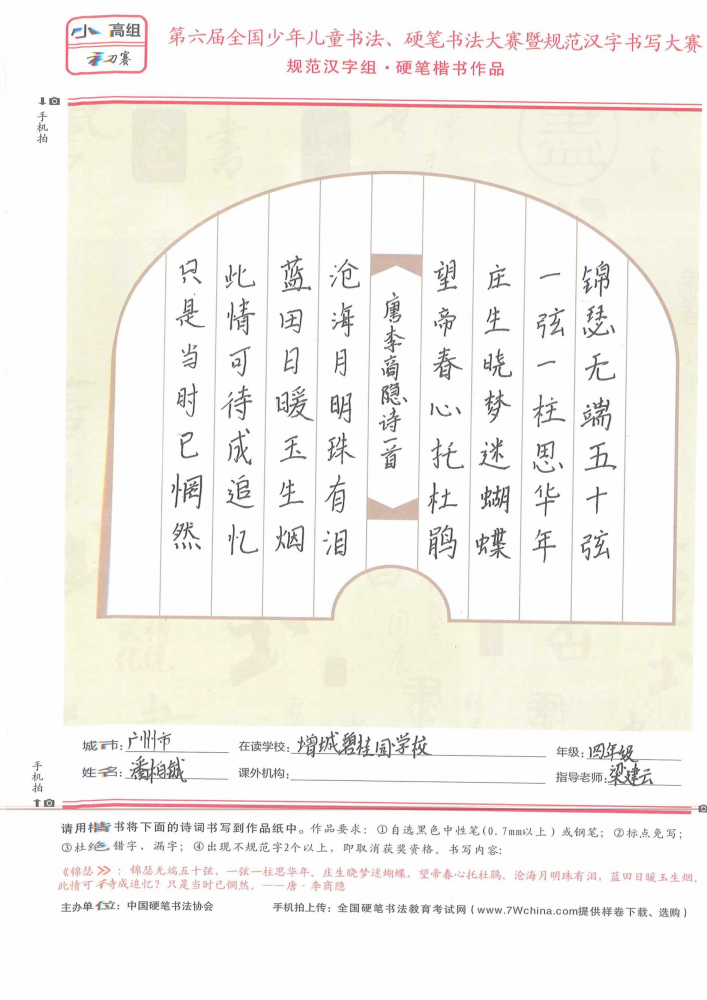 小 高组
初赛
第六届全国少年儿童书法、硬笔书法大赛暨规范汉字书写大赛
规范汉字组·硬笔楷书作品
手机拍
锦瑟无端五十弦
一弦一柱思华年
庄生晓梦迷蝴蝶
望帝春心托杜鹃
唐李商隐诗一首
沧海月明珠有泪
蓝田日暖玉生烟
此情可待成追忆
只是当时已惘然
城市：广州市
在读学校：增城碧桂园学校
年级：四年级
姓名：潘柏铖
课外机构：
指导老师：梁建云
手机拍
请用楷书将下面的诗词书写到作品纸中。作品要求：①自选黑色中性笔(0.7mm以上)或钢笔；②标点免写；
③杜绝错字、漏字；④出现不规范字2个以上，即取消获奖资格。书写内容：
《锦瑟》：锦瑟无端五十弦，一弦一柱思华年。庄生晓梦迷蝴蝶，望帝春心托杜鹃。沧海月明珠有泪，蓝田日暖玉生烟。
此情可待成追忆？只是当时已惘然。——唐·李商隐
主办单位：中国硬笔书法协会
手机拍上传：全国硬笔书法教育考试网（www.7Wchina.com提供样卷下载、选购）